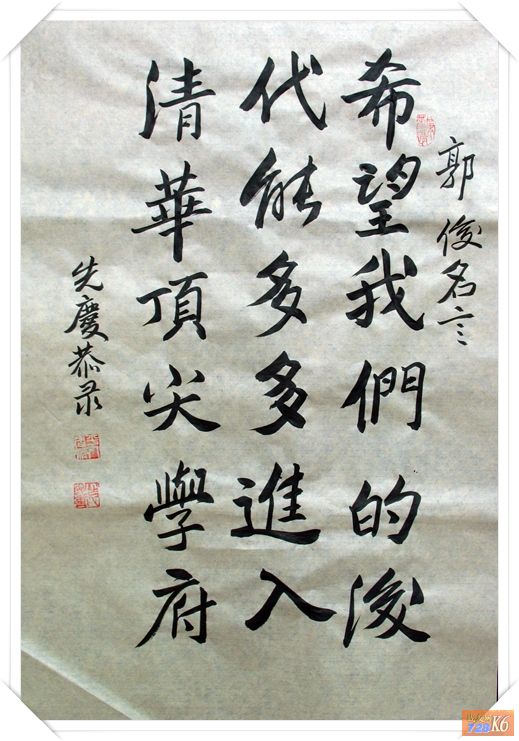 郭俊名言
希望我們的後
代能多多進入
清華頂尖學府
先慶恭录
728 K6